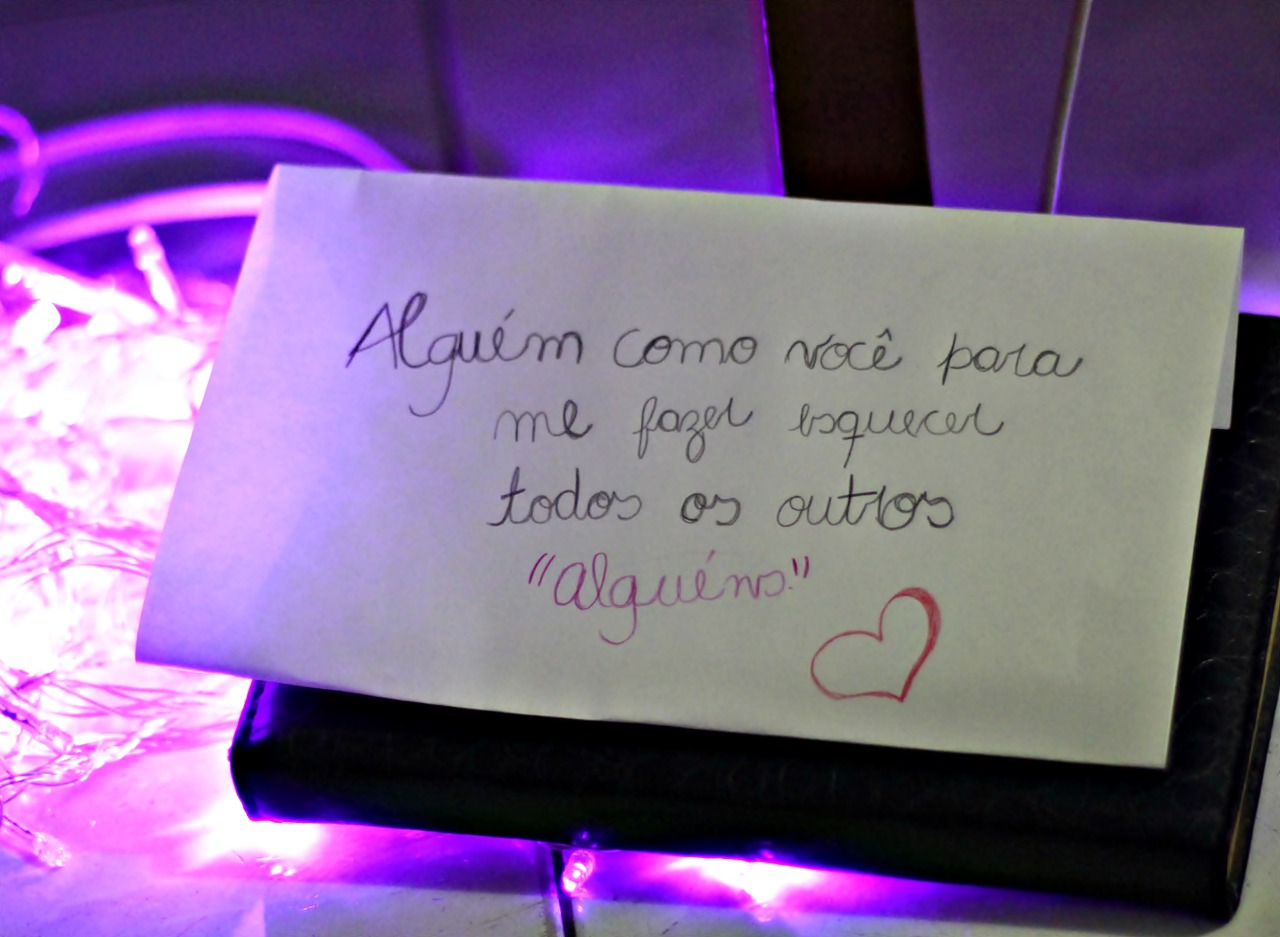 Alguém como você para
me fazer esquecer
todos os outros
"alguéns."